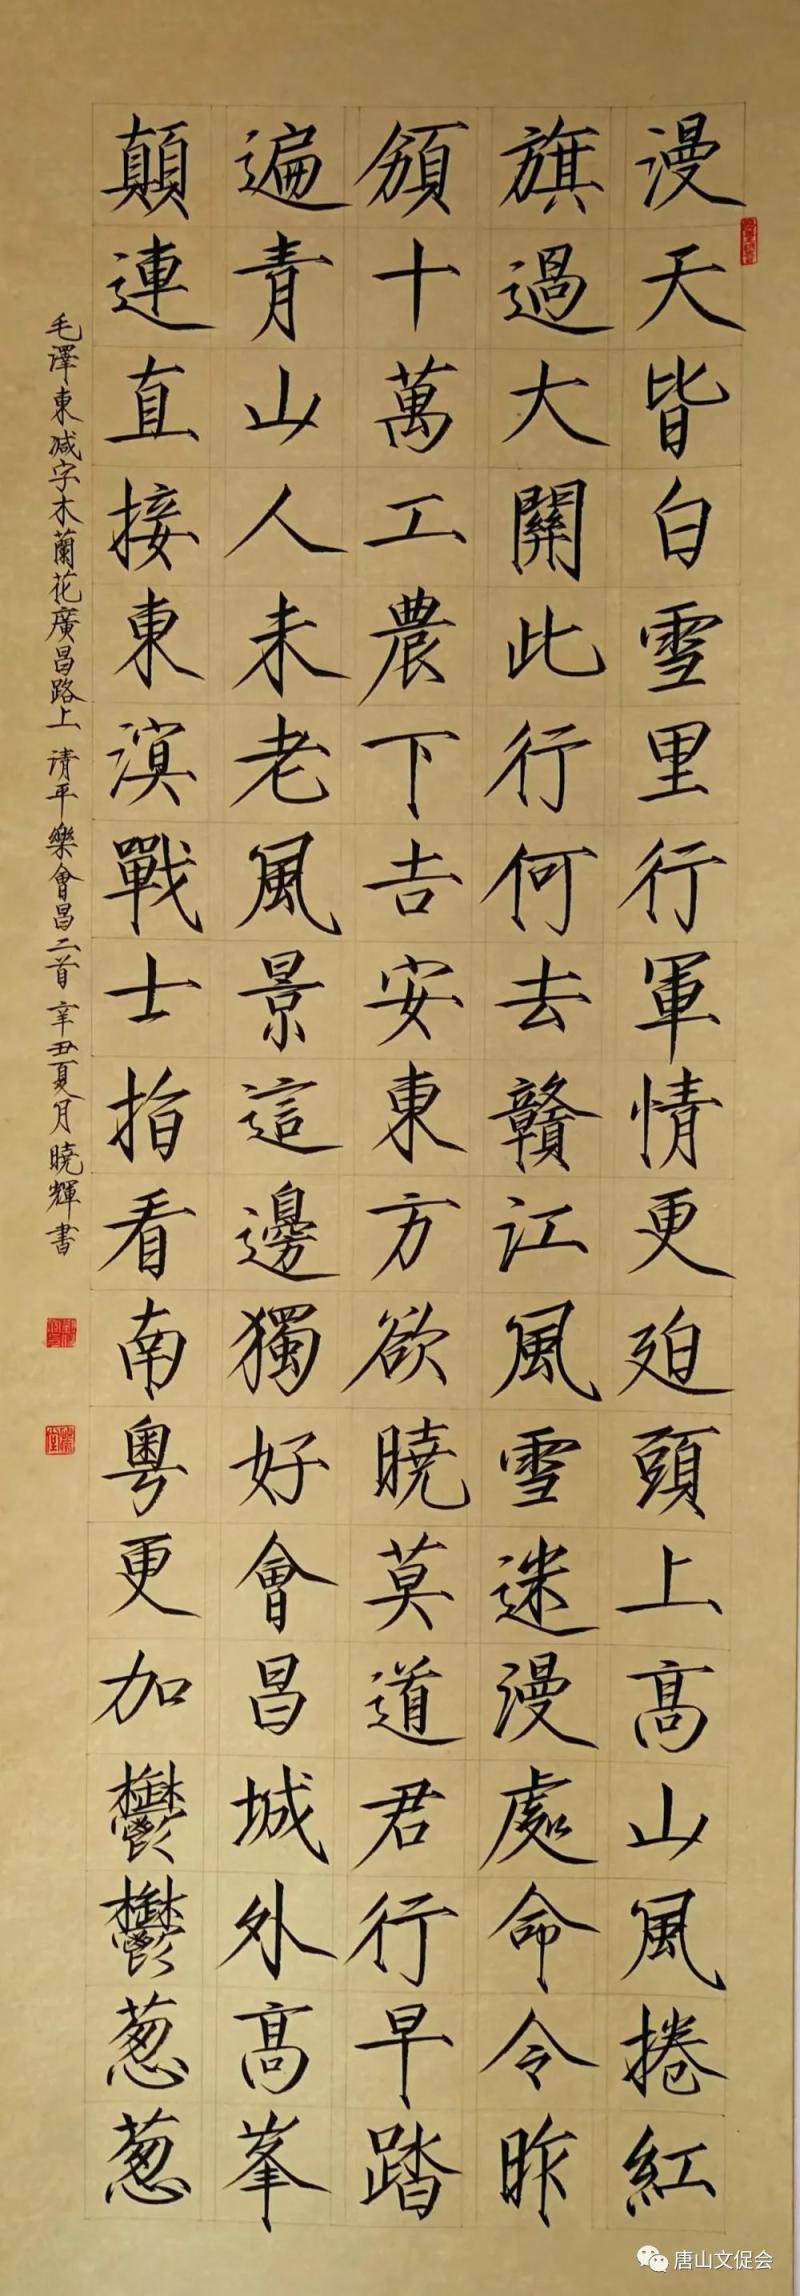 漫天皆白雪里行軍情更迫頭上高山風捲紅
旗過大關此行何去贛江風雪迷漫處命令昨
頒十萬工農下吉安東方欲曉莫道君行早踏
遍青山人未老風景這邊獨好會昌城外高峯
顛連直接東溟戰士指看南粵更加鬱鬱蔥蔥
毛澤東减字木蘭花廣昌路上 清平樂會昌二首 辛丑夏月曉輝書
唐山文促会